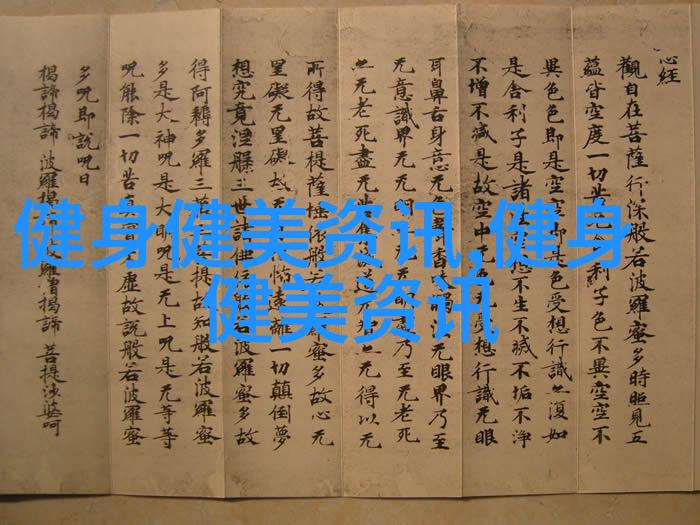 心经
觀自在菩薩行深般若波羅蜜多時照見五
蘊皆空度一切苦利子色不異空空不
異色色即是空空即是色受想行識亦復如
是舍利子是諸不生不滅不垢不淨
不增不減是故空中无色无受想行識无眼
耳鼻舌身意无色聲香法无眼界乃至
无意識界无无乃至无老死
亦无老死盡无道无得以无
所得故菩提薩埵依般若蜜多故心无
罣礙无罣礙故无怖遠離一切顛倒夢
想究竟涅槃三世諸佛若波羅蜜多故
得阿耨多羅三提故知般若波羅蜜
多是大神呪是大明呪是无上呪是无等等
呪能除一切苦虛故說般若波羅蜜
多呪即說呪曰
揭諦揭諦 波羅揭諦 波羅僧揭諦 菩提沙婆呵
健身健美资讯,健身
健美资讯